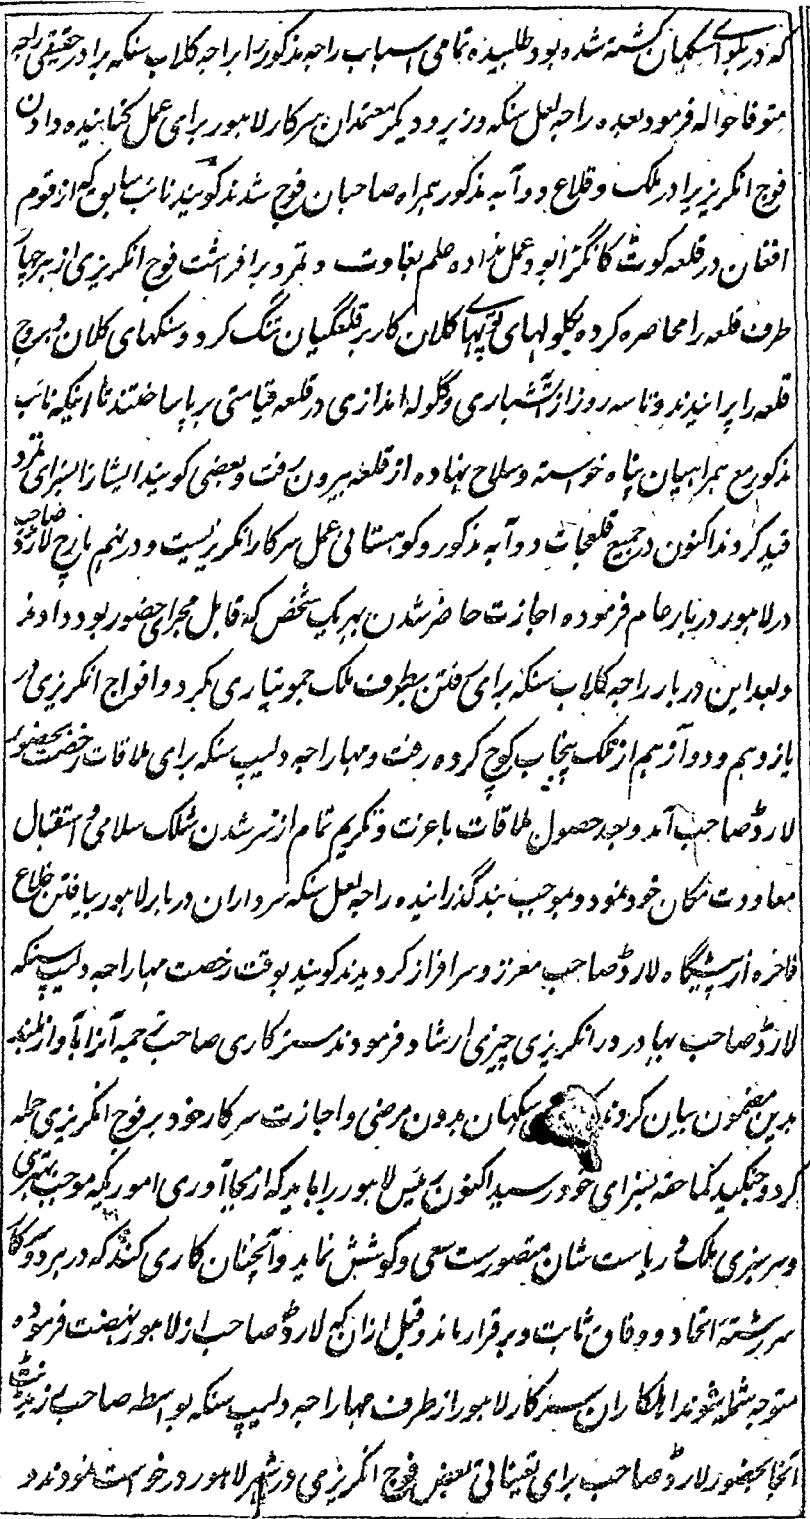 که در بلوای سکهان کشته شده بود طلبیده تمامی اسباب راجه مذکور را براجه کلاب سنکه برادر حقیقی راجه
متوفا حواله فرمود بعده راجه لعل سنکه وزیر و دیگر معتمدان سرکار لاهور برای عمل کنانیده دادن
فوج انکریزیرا در ملک و قلاع دوآبه مذکور همراه صاحبان فوج شدند کویند نائب سابق که از قوم
افغان در قلعه کوٹ کانگڑا بود عمل نداده علم بغاوت و تمرد برافراشت فوج انکریزی از هر چهار
طرف قلعه را محاصره کرده بکولهای توپهای کلان کار بر قلعگیان تنگ کرد و سنکهای کلان و بروج
قلعه را پرانیدند و تا سه روز از آتشباری و گلوله اندازی در قلعه قیامتی برپا ساختند تا اینکه نائب
مذکور مع همراهیان پناه خواسته و سلاح نهاده از قلعه بیرون رفت و بعضی کویند ایشانرا بسزای تمرد
قید کردند اکنون در جمیع قلعجات دوآبه مذکور و کوهستانی عمل سرکار انکریزیست و در نهم مارچ لارڈ صاحب
در لاهور دربار عام فرموده اجازت حاضر شدن بهر یک شخص که قابل مجرای حضور بود دادند
و بعد این دربار راجه کلاب سنکه برای رفتن بطرف ملک جمو تیاری کرد و افواج انکریزی در
یازدهم و دوآزدهم از ملک پنجاب کوچ کرده رفت و مهاراجه دلیپ سنکه برای ملاقات رخصت بحضور
لارڈ صاحب آمد و بعد حصول ملاقات باعزت و تکریم تمام از سر شدن شلک سلامی و استقبال
معاودت مکان خود نمود و بموجب بند گذرانیده راجه لعل سنکه سرداران دربار لاهور بیافتن خلاع
فاخره از پیشگاه لارڈ صاحب معزز و سرافراز کردیدند کویند بوقت رخصت مهاراجه دلیپ سنکه
لارڈ صاحب بهادر در انکریزی چیزی ارشاد فرمودند مستر کاری صاحب ترجمه آنرا بآواز بلند
بدین مضمون بیان کردند سکهان بدون مرضی و اجازت سرکار خود بر فوج انکریزی حمله
کرد و جنکید کماحقه بسزای خود رسید اکنون رئیس لاهور را باید که از بجاآوری امور یکه موجب بهتری
و سرسبزی ملک و ریاست شان متصورست سعی و کوشش نماید و آنچنان کاری کند که در هر دو سرکار
سررشته اتحاد و وفاق ثابت و برقرار ماند و قبل ازان که لارڈ صاحب از لاهور نهضت فرموده
متوجه شمله شوند اهلکاران سرکار لاهور از طرف مهاراجه دلیپ سنکه بواسطه صاحب رزیڈنٹ
آنجا بحضور لارڈ صاحب برای تعیناتی بعض فوج انکریزی در شهر لاهور درخواست نمودند و